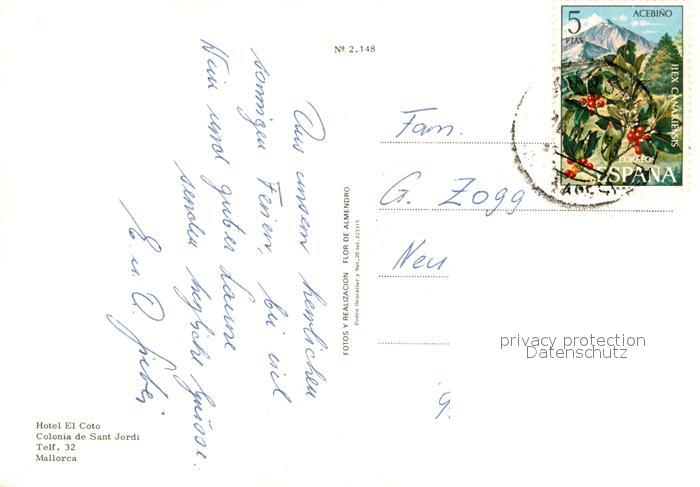 Nº 2.148
Aus unsern herrlichen
sonnigen Ferien, bei viel
Wein und guter Laune
senden herzliche Grüsse.
E. u. O.
FOTOS Y REALIZACION FLOR DE ALMENDRO
Hotel El Coto
Colonia de Sant Jordi
Telf. 32
Mallorca
5
PTAS
ACEBIÑO
ILEX CANARIENSIS
CORREOS
ESPAÑA
Fam.
G. Zogg
Neu
9
privacy protection
Datenschutz